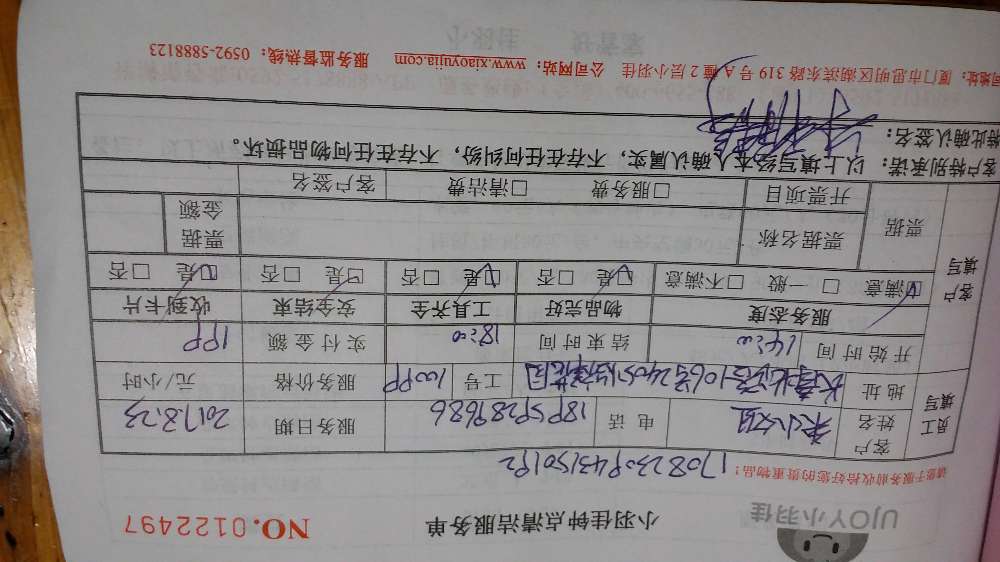 UJOY小羽佳
小羽佳钟点清洁服务单
NO.0122497
请您于服务前收拾好您的贵重物品!
员工填写
客户姓名
电 话
服务日期
2017.8.23
地 址
工号
服务价格
元/小时
开 始 时 间
14:00
结 束 时 间
18:00
实 付 金 额
客户填写
服务态度
物品完好
工具齐全
安全结束
收到卡片
☑满意 □一般 □不满意
☑是 □否
☑是 □否
☑是 □否
☑是 □否
票据
票据名称
票据金额
开票项目
□服务费 □清洁费
客户签名
客户特别承诺:以上填写经本人确认属实,不存在任何纠纷,不存在任何物品损坏。
特此确认签名:
司地址:厦门市思明区湖滨东路 319 号 A 幢 2 层小羽佳 公司网站:www.xiaoyujia.com 服务监督热线:0592-5888123